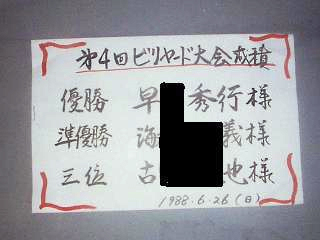 第4回ビリヤード大会成績
優勝 早 秀行様
準優勝 海 義様
三位 古 也様
1988.6.26(日)